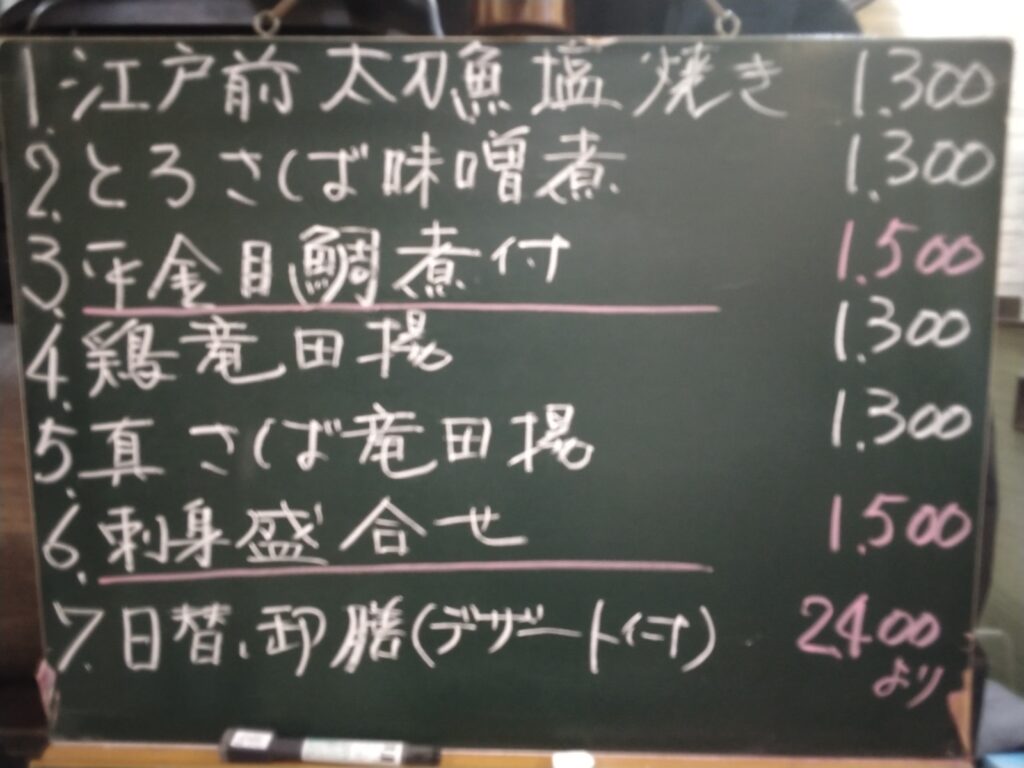 1. 江戸前 太刀魚 塩焼き 1.300
2. とろさば味噌煮 1.300
3. 平金目鯛煮付 1.500
4. 鶏竜田揚 1.300
5. 真さば竜田揚 1.300
6. 刺身盛合せ 1.500
7. 日替、卸膳(デザート付) 2400
より